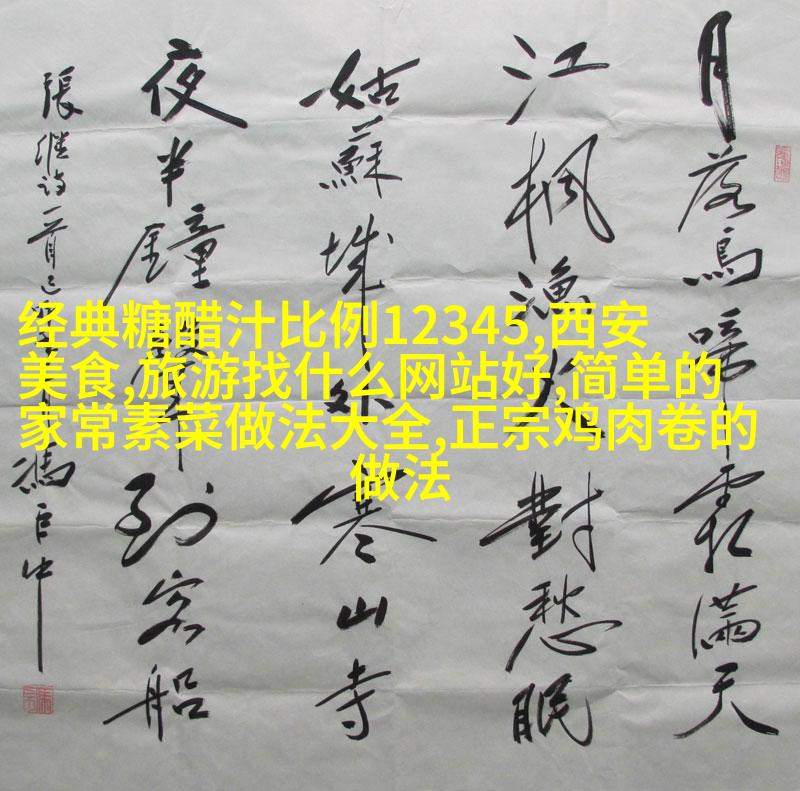 月落烏啼霜滿天
江楓漁火對愁眠
姑蘇城外寒山寺
夜半鐘聲到客船
張繼詩一首
经典糖醋汁比例12345,西安
美食,旅游找什么网站好,简单的
家常素菜做法大全,正宗鸡肉卷的
做法